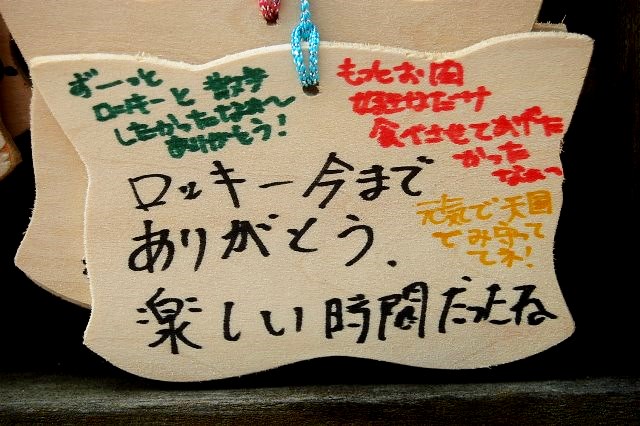 ずーっと
ロッキーと 散歩
したかったなぁ〜
ありがとう!
もっとお肉
好きなだケ
食べさせてあげた
かった
なぁっ
ロッキー今まで
ありがとう.
楽しい時間だったね
元気で天国
でみ守って
てネ!